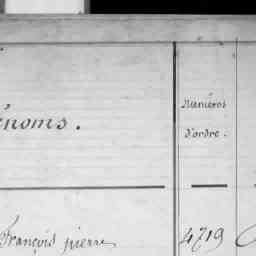 énoms.
Numéros
d'ordre.
François pierre 4719